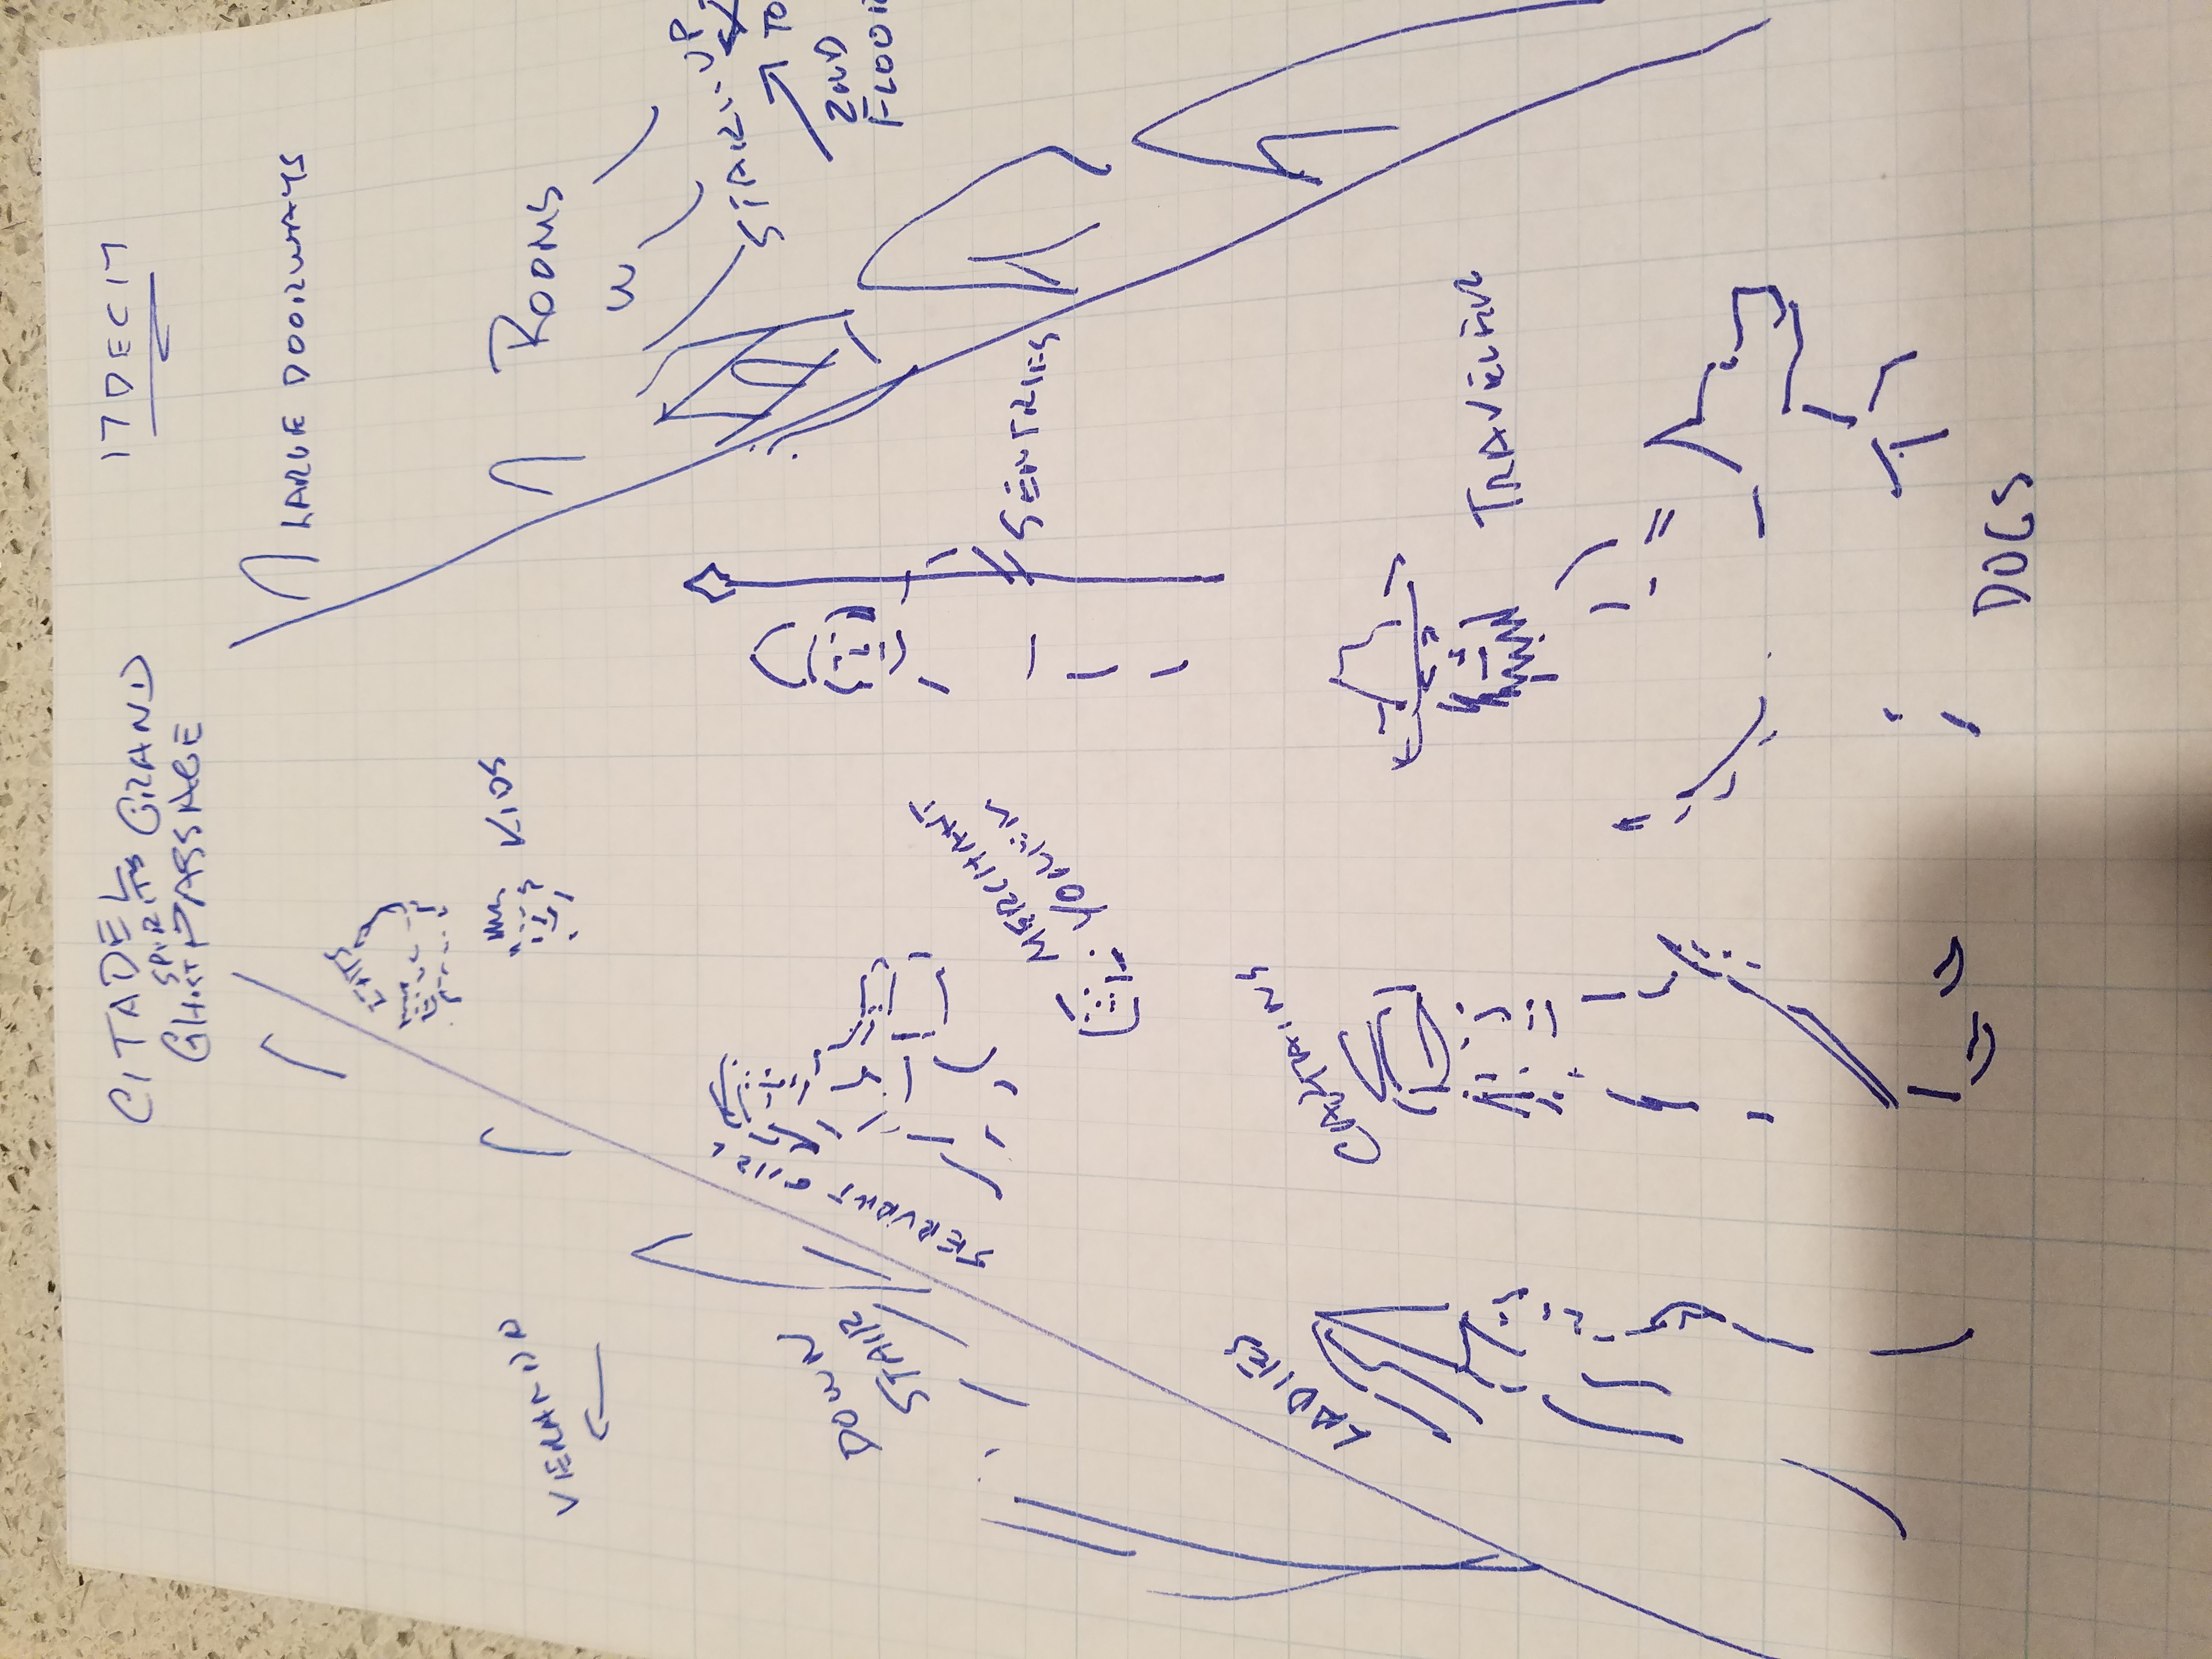 CITADEL
SPIRITS GRAND
GHOST PASSAGE
17 DEC 17
LARGE DOORWAYS
CATS
KIDS
VERANDA
ROOMS
STAIR UP
TO
2ND
FLOOR
DOWN
STAIR
SERVANT GIRL
MERCHANT
YOMEN
SENTRIES
LADIES
CAPTAINS
TRAVELER
DOGS